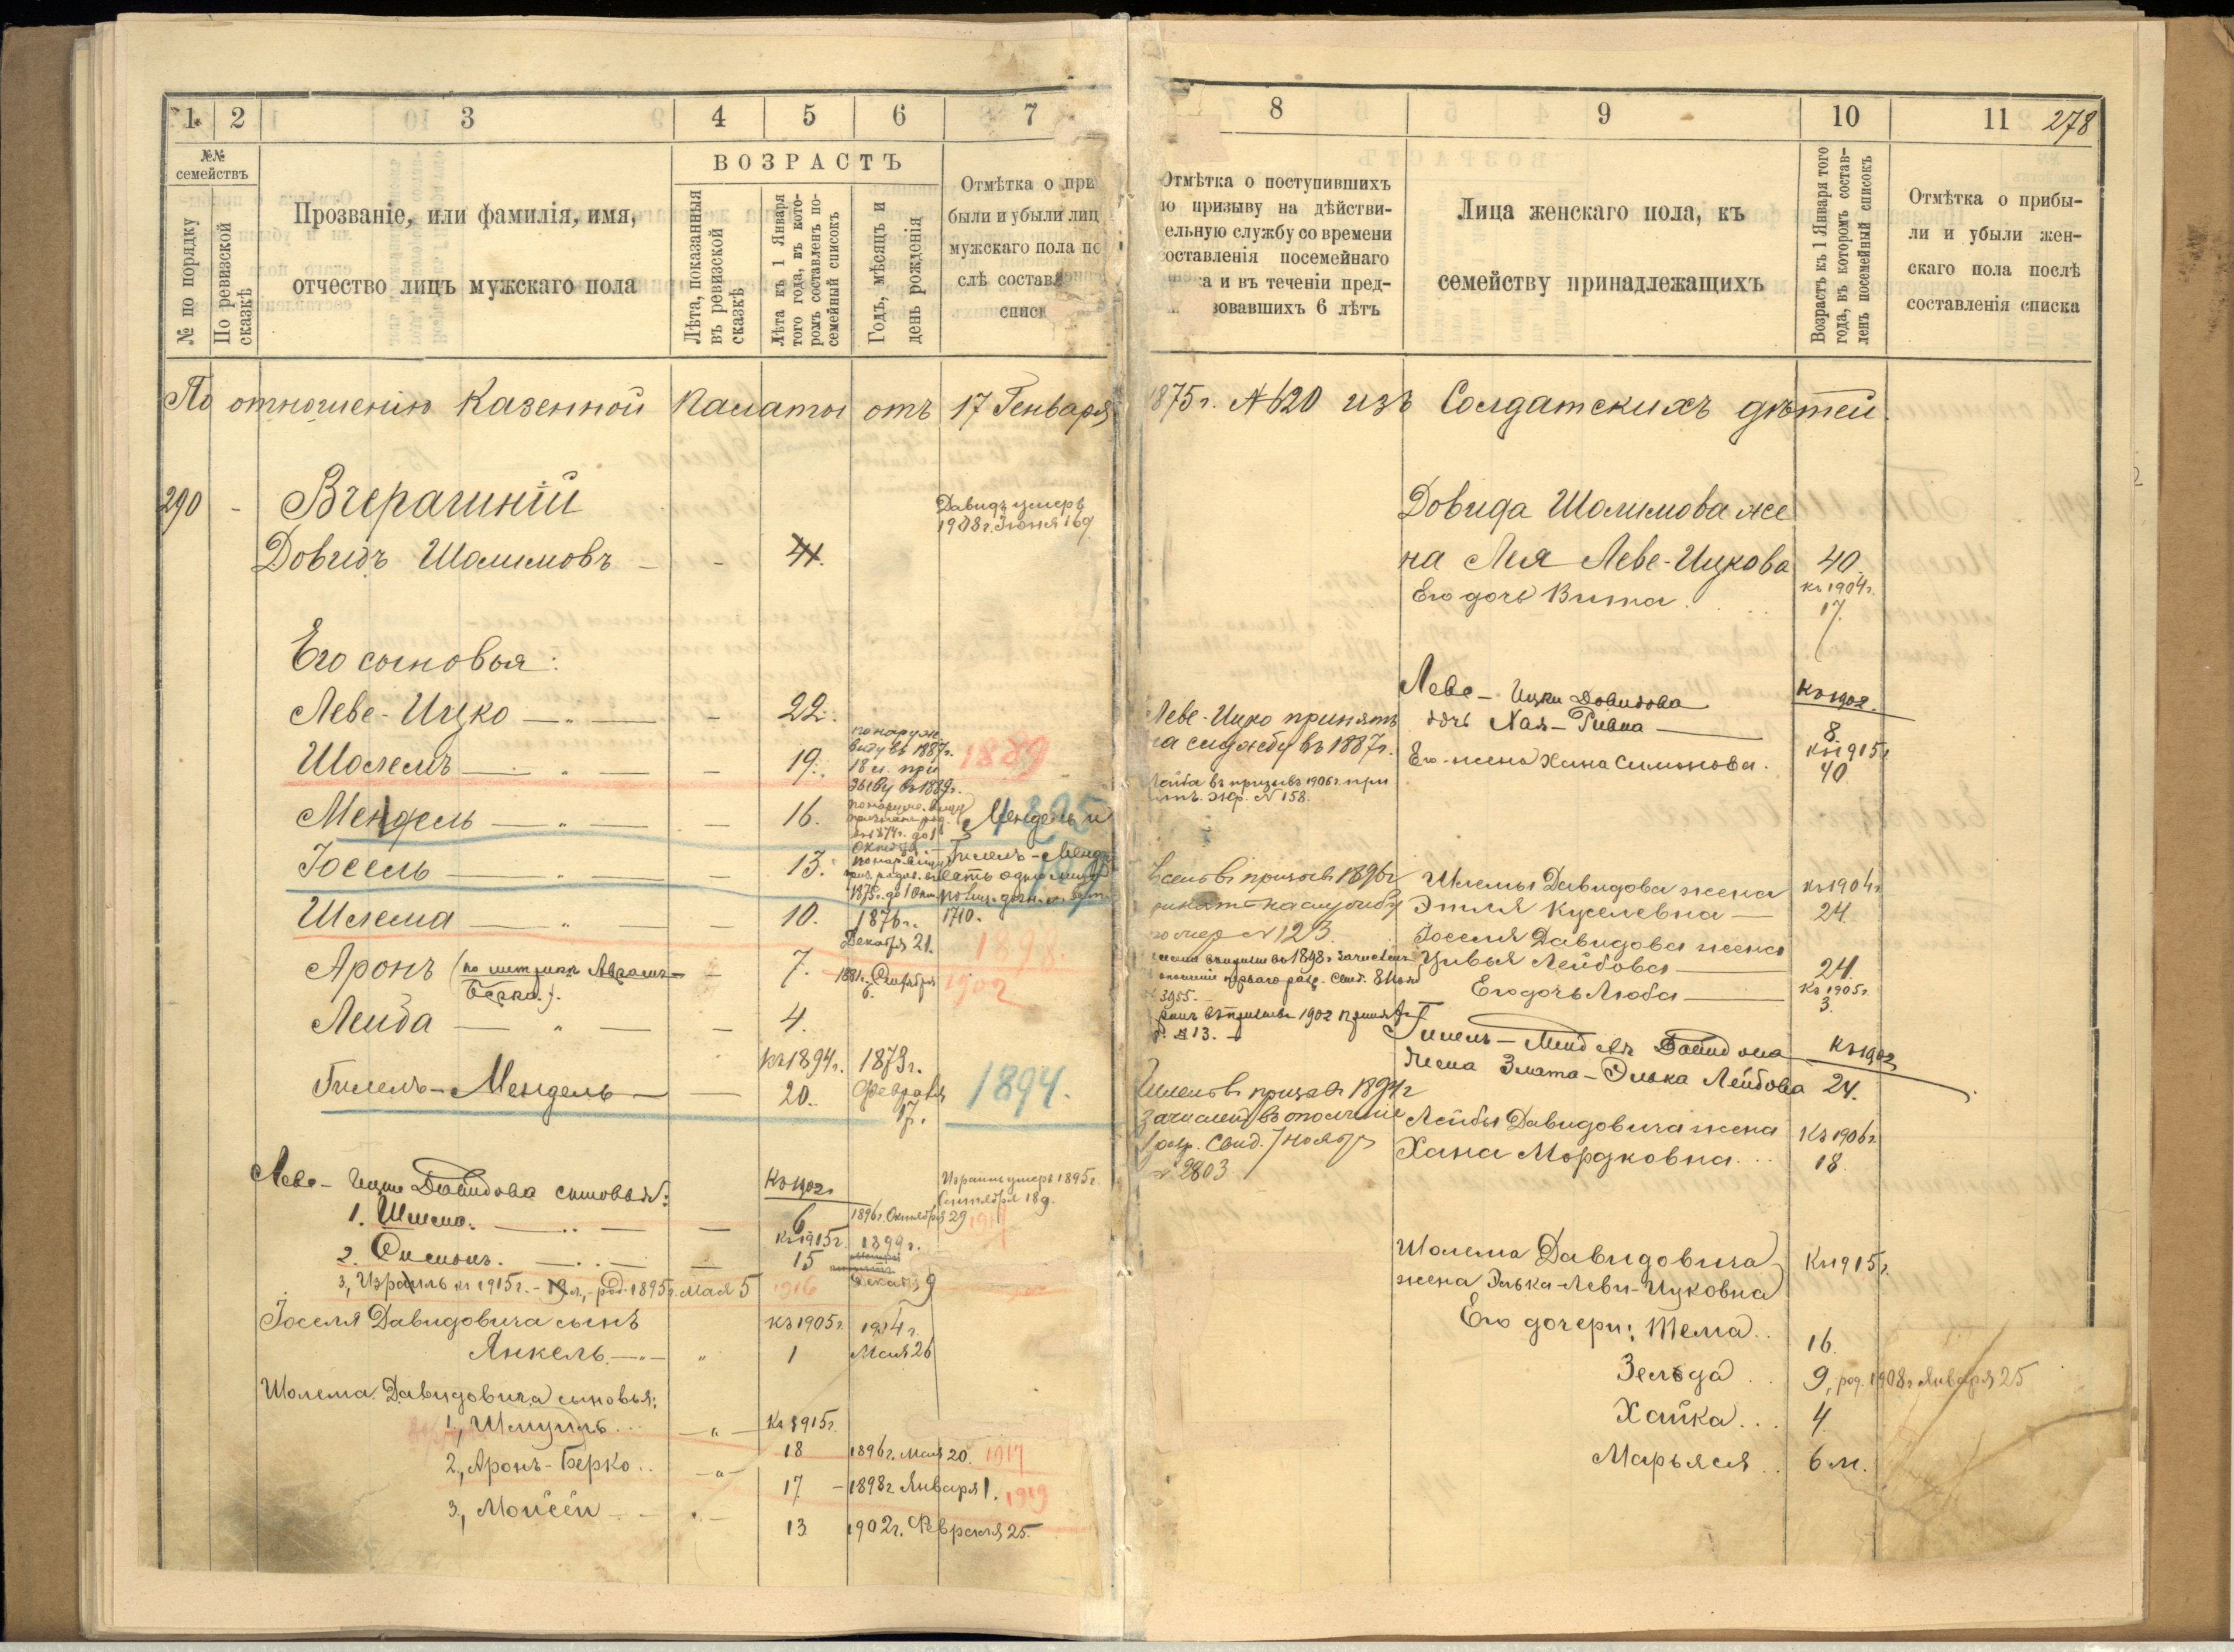 1. 2 3 4 5 6 7
№№ семействъ
№ по порядку
По ревизской сказкѣ
Прозваніе, или фамилія, имя,
отчество лицъ мужскаго пола
ВОЗРАСТЪ
Лѣта, показанныя
въ ревизской
сказкѣ
Лѣта къ 1 Января
того года, въ кото-
ромъ составленъ по-
семейный списокъ
Годъ, мѣсяцъ и
день рожденія
Отмѣтка о при
были и убыли лиц
мужскаго пола по
слѣ состав
списк
По отношенію Казенной Палаты отъ 17 Генваря
290 - Вчерашній
Давидъ умеръ
1908 г. Іюня 16 д.
Довидъ Шолимовъ - - 41.
Его сыновья:
Леве-Ицко — " — - 22.
по наруж.
виду въ 1887 г.
18 л. при
зыву въ 1889 г.
Шолемъ — " — - 19. 1889
Мендель — " — - 16.
Мендель и
1895
Іосель — " — - 13.
Гилель-Менд
есть одно лицо
1875 г. до 1 Окт.
Шлема — " — - 10. 1876 г. 1710.
Декабря 21. 1898.
Аронъ (по метрикѣ Авраамъ-
Берко). - 7. 1881 г. Октября
6. 1902
Лейба — " — - 4.
къ 1894 г. 1873 г.
Гилель-Мендель — — 20. Февраля
17. 1894.
Леве-Ицки Давидова сыновья:
Къ 1902
Израиль умеръ 1895 г.
Сентября 18 д.
1. Шлема. — " — — 6 1896 г. Октября 29 1917
къ 1915 г. 1899 г.
2. Симонъ. — " — — 15 Декабр. 9
3, Израиль къ 1915 г. - 19 л., - род. 1895 г. Мая 5 1916
Іоселя Давидовича сынъ къ 1905 г. 1904 г.
Янкель. — " — " 1 Мая 26
Шолема Давидовича сыновья:
1, Шмуиль... — " — Къ 1915 г.
18 1896 г. Мая 20. 1917
2, Аронъ-Берко.. — " — 17 - 1898 г. Января 1. 1919
3, Мойсей - - " - 13 1902 г. Февраля 25.
8 9 10 11 278
Отмѣтка о поступившихъ
ю призыву на дѣйстви-
ельную службу со времени
оставленія посемейнаго
а и въ теченіи пред-
вовавшихъ 6 лѣтъ
Лица женскаго пола, къ
семейству принадлежащихъ
Возрастъ къ 1 Января того
года, въ которомъ состав-
ленъ посемейный списокъ
Отмѣтка о прибы-
ли и убыли жен-
скаго пола послѣ
составленія списка
1875 г. № 620 изъ Солдатскихъ дѣтей.
Довида Шолимова же
на Лея Леве-Ицкова 40.
къ 1904 г.
Его дочь Вита. . . . 17.
Леве-Ицко принятъ
на службу въ 1887 г.
Леве-Ицки Довидова Къ 1902.
дочь Хая-Ривка — 8.
къ 1915 г.
Его жена Хана Симонова. 40
Лейба въ призывъ 1906 г. при
нятъ. Жр. № 158.
Іосель въ призывъ 1896 г.
принятъ на службу
номер № 123.
Шлемы Давидова жена къ 1904 г.
Этля Куселевна — 24.
Іоселя Давидова жена
Цивья Лейбова — 24.
Его дочь Люба — къ 1905 г.
3.
№ 3955.
въ призывъ 1902 принятъ
№ 13.
Гилель-Менделя Давидова къ 1902
жена Злата-Элька Лейбова 24.
Гилель въ призывъ 1894 г.
зачисленъ въ ополченіе
1 разр. Свид. 7 Ноябр
№ 2803.
Лейбы Давидовича жена Къ 1906 г.
Хана Мордковна... 18.
Шолема Давидовича Къ 1915 г.
жена Элька-Леви-Ицковна
Его дочери: Тема.. 16.
Зельда.. 9, род. 1908 г. Января 25
Хайка... 4.
Марьяся.. 6 м.